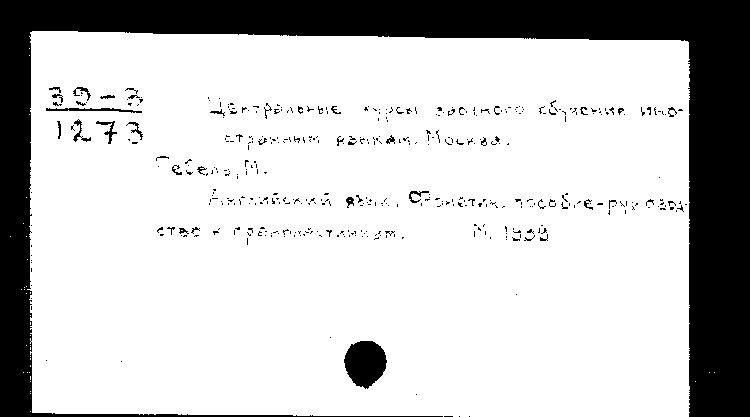 39-3
1273
Центральные курсы заочного обучения ино-
странным языкам. Москва.
Гебель, М.
Английский язык. Фонетич. пособие-руковод-
ство к грампластинкам. М. 1939